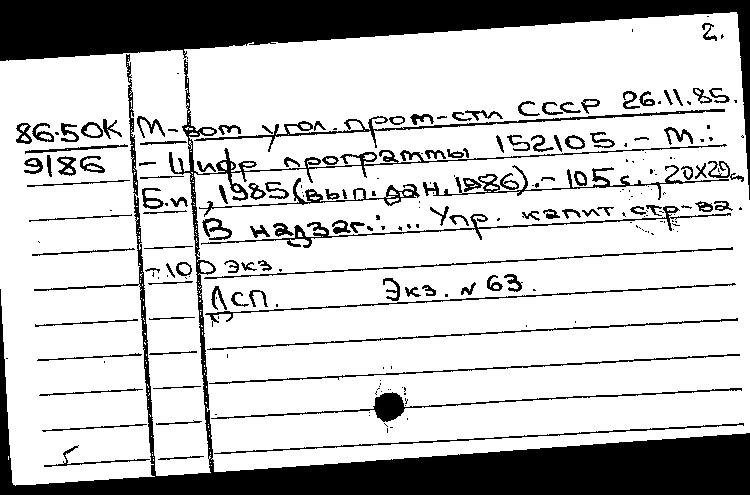 2.
86-50К М-вом угол. пром-сти СССР 26.11.85.
9186 - Шифр программы 152105. - М.:
Б.и., 1985 (вып. дан. 1986). - 105 с.; 20х29см
В надзаг.: ... Упр. капит. стр-ва.
-100 экз.
ДСП. Экз. N 63.
5